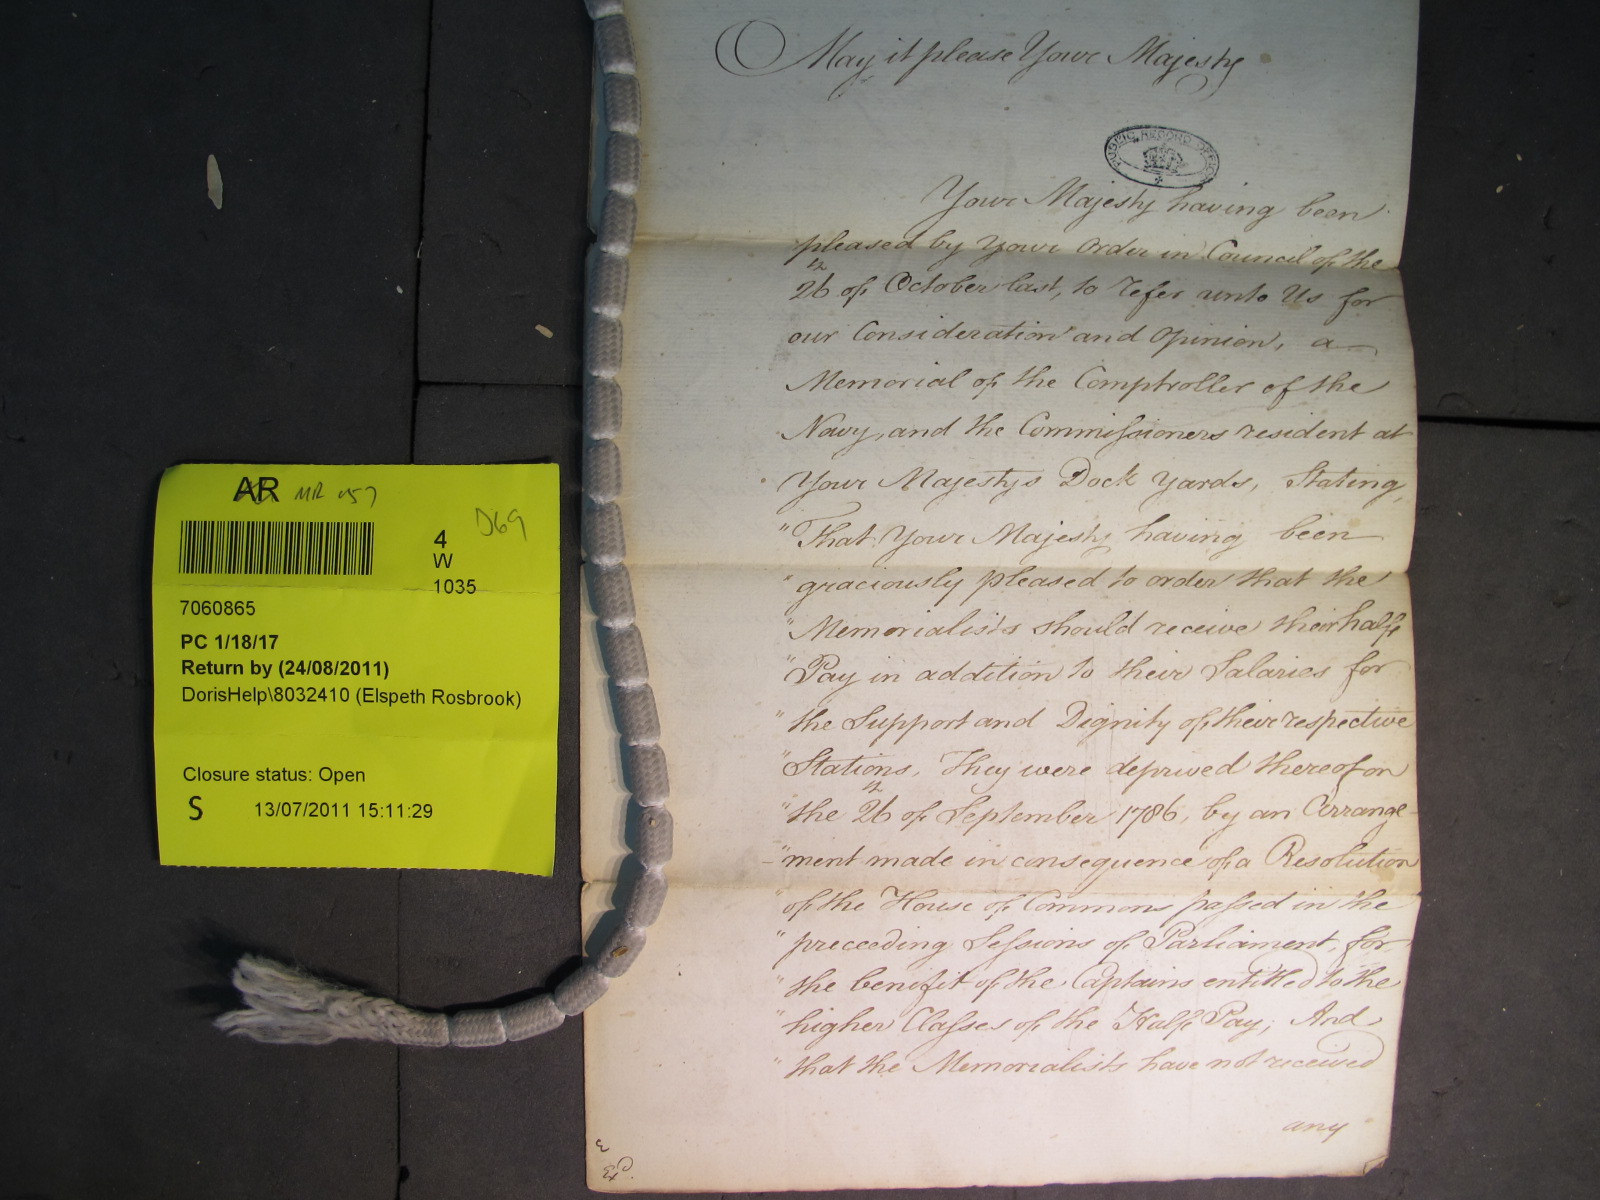 AR MR 057
D69
4
W
1035
7060865
PC 1/18/17
Return by (24/08/2011)
DorisHelp\8032410 (Elspeth Rosbrook)
Closure status: Open
S 13/07/2011 15:11:29
May it please Your Majesty
PUBLIC RECORD OFFICE
Your Majesty having been
pleased by Your Order in Council of the
26th of October last, to refer unto Us for
our Consideration and Opinion, a
Memorial of the Comptroller of the
Navy, and the Commissioners resident at
Your Majestys Dock Yards, Stating,
"That Your Majesty having been
"graciously pleased to order that the
"Memorialists should receive their halfe
"Pay in addition to their Salaries for
"the Support and Dignity of their respective
"Stations, They were deprived thereof on
"the 26th of September 1786, by an Arrange-
"ment made in consequence of a Resolution
"of the House of Commons passed in the
"preceeding Sessions of Parliament, for
"the benifit of the Captains entitled to the
"higher Classes of the Halfe Pay; And
"that the Memorialists have not received
any